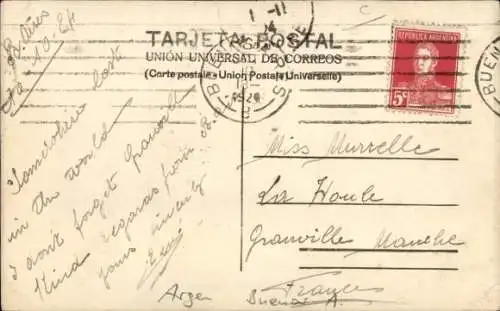 TARJETA POSTAL
UNIÓN UNIVERSAL DE CORREOS
(Carte postale - Union Postale Universelle)
REPUBLICA ARGENTINA
5c
BUEN
1924
B. Aires
Somewhere lost
in the world
I don't forget Granville
Kind regards from
yours sincerely
Miss Murrelle
La Houle
Granville Manche
France
Argen Buenos A.